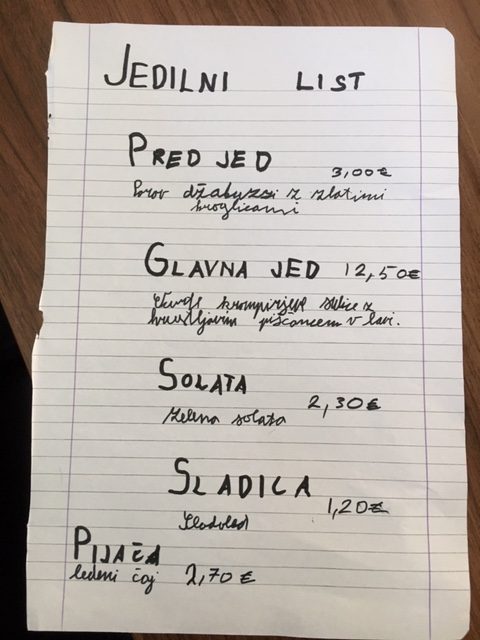 JEDILNI LIST
PRED JED 3,00€
džakuzzi z zlatimi
kroglicami
GLAVNA JED 12,50€
krompirjeve z
hrustljavim piščancem v lavi.
SOLATA 2,30€
zelena solata
SLADICA 1,20€
Sladoled
PIJAČA
ledeni čaj 2,70€